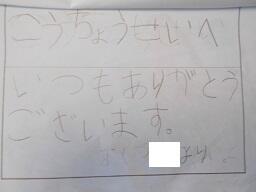 こうちょうせいへ
いつもありがとう
ございます。
より。